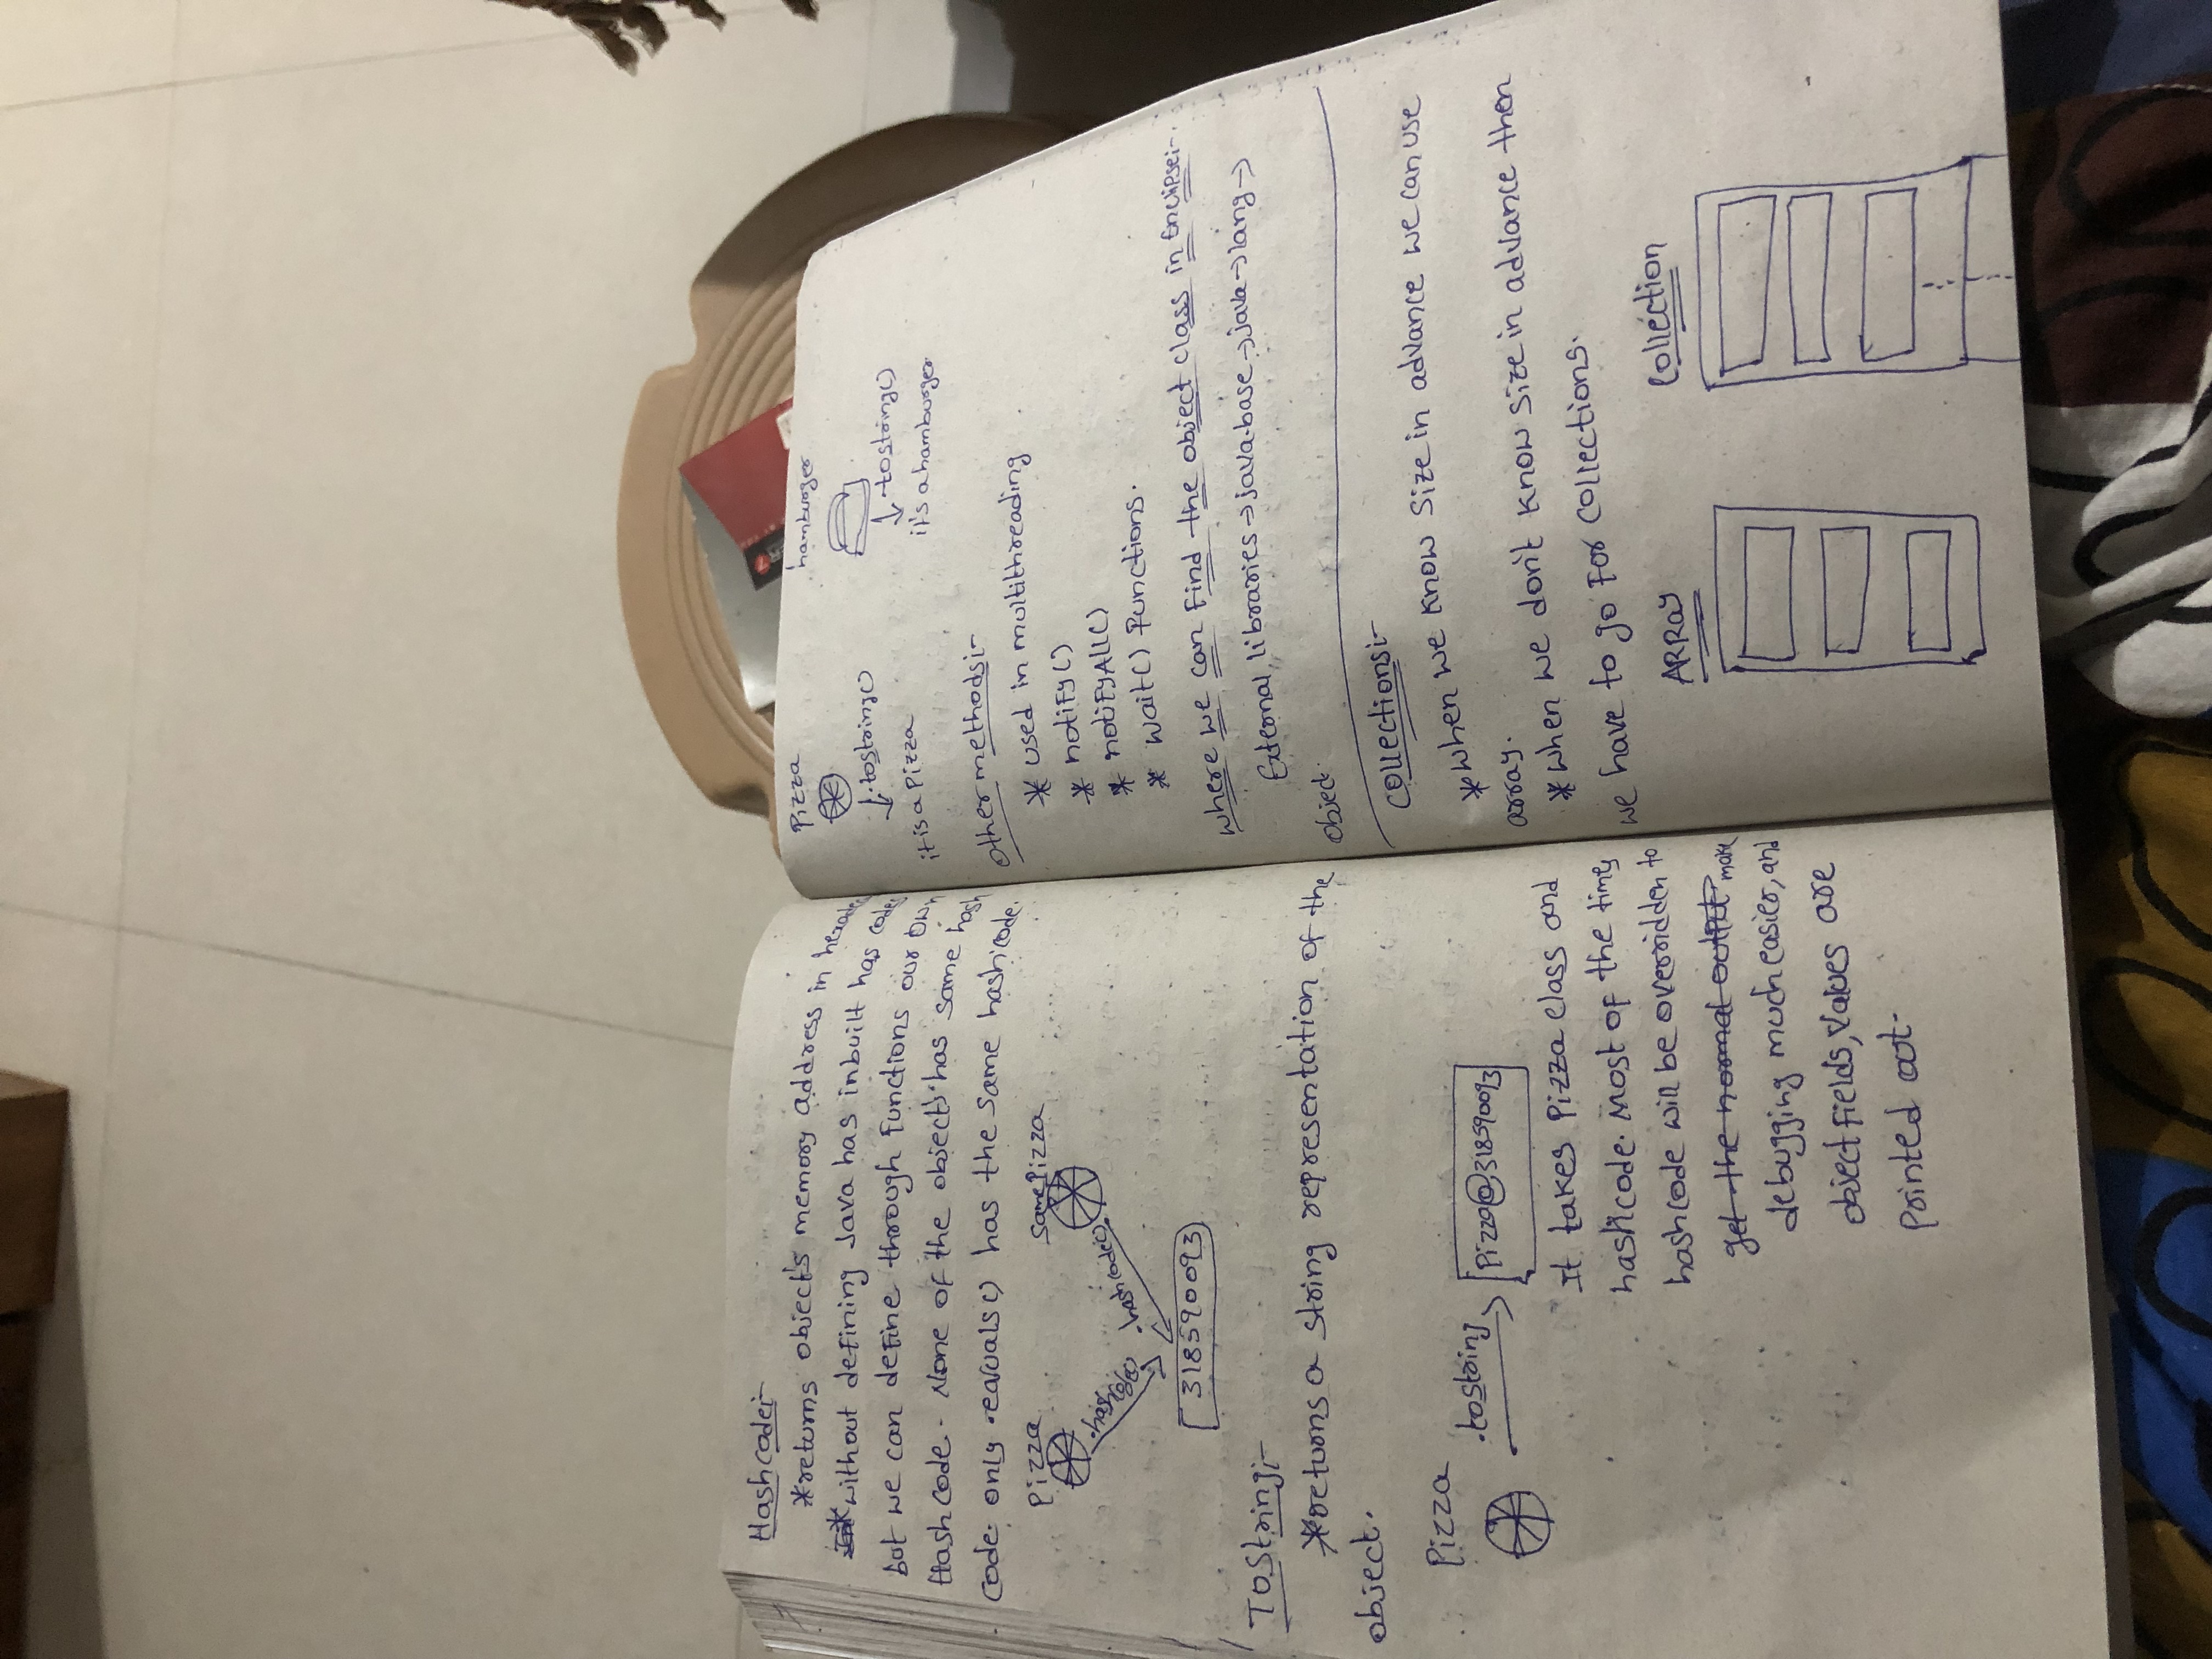 Hashcode:-
*returns object's memory address in hexadec
* without defining Java has inbuilt has codes
but we can define through functions our own
Hash code. None of the objects has same hash
code. only .eavuals() has the same hashcode.
Pizza
same Pizza
.hashcode()
.hashcode()
318590093
ToString:-
*returns a string representation of the
object.
Pizza
.tostring
Pizza@318590093
It takes Pizza class and
hashcode. Most of the times
hashcode will be overridden to
get the normal output make
debugging much easier, and
object fields, values are
Printed out.
Pizza
hamburger
.tostring()
.tostring()
it is a Pizza
it's a hamburger
other methods:-
* used in multithreading
* notify()
* notifyAll()
* wait() functions.
where we can find the object class in Enclipse:-
External libraries → java.base → java → lang →
object.
Collections:-
*when we know size in advance we can use
array.
*when we don't know size in advance then
we have to go for collections.
ARRay
Collection